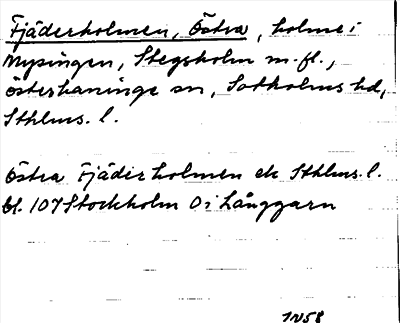 Fjäderholmen, Östra, holme i
Mysingen, Stegsholm m.fl.,
Österhaninge sn, Sotholms hd,
Sthlms. l.
Östra Fjäderholmen ek Sthlms. l.
bl. 107 Stockholm O i Långgarn
1N58